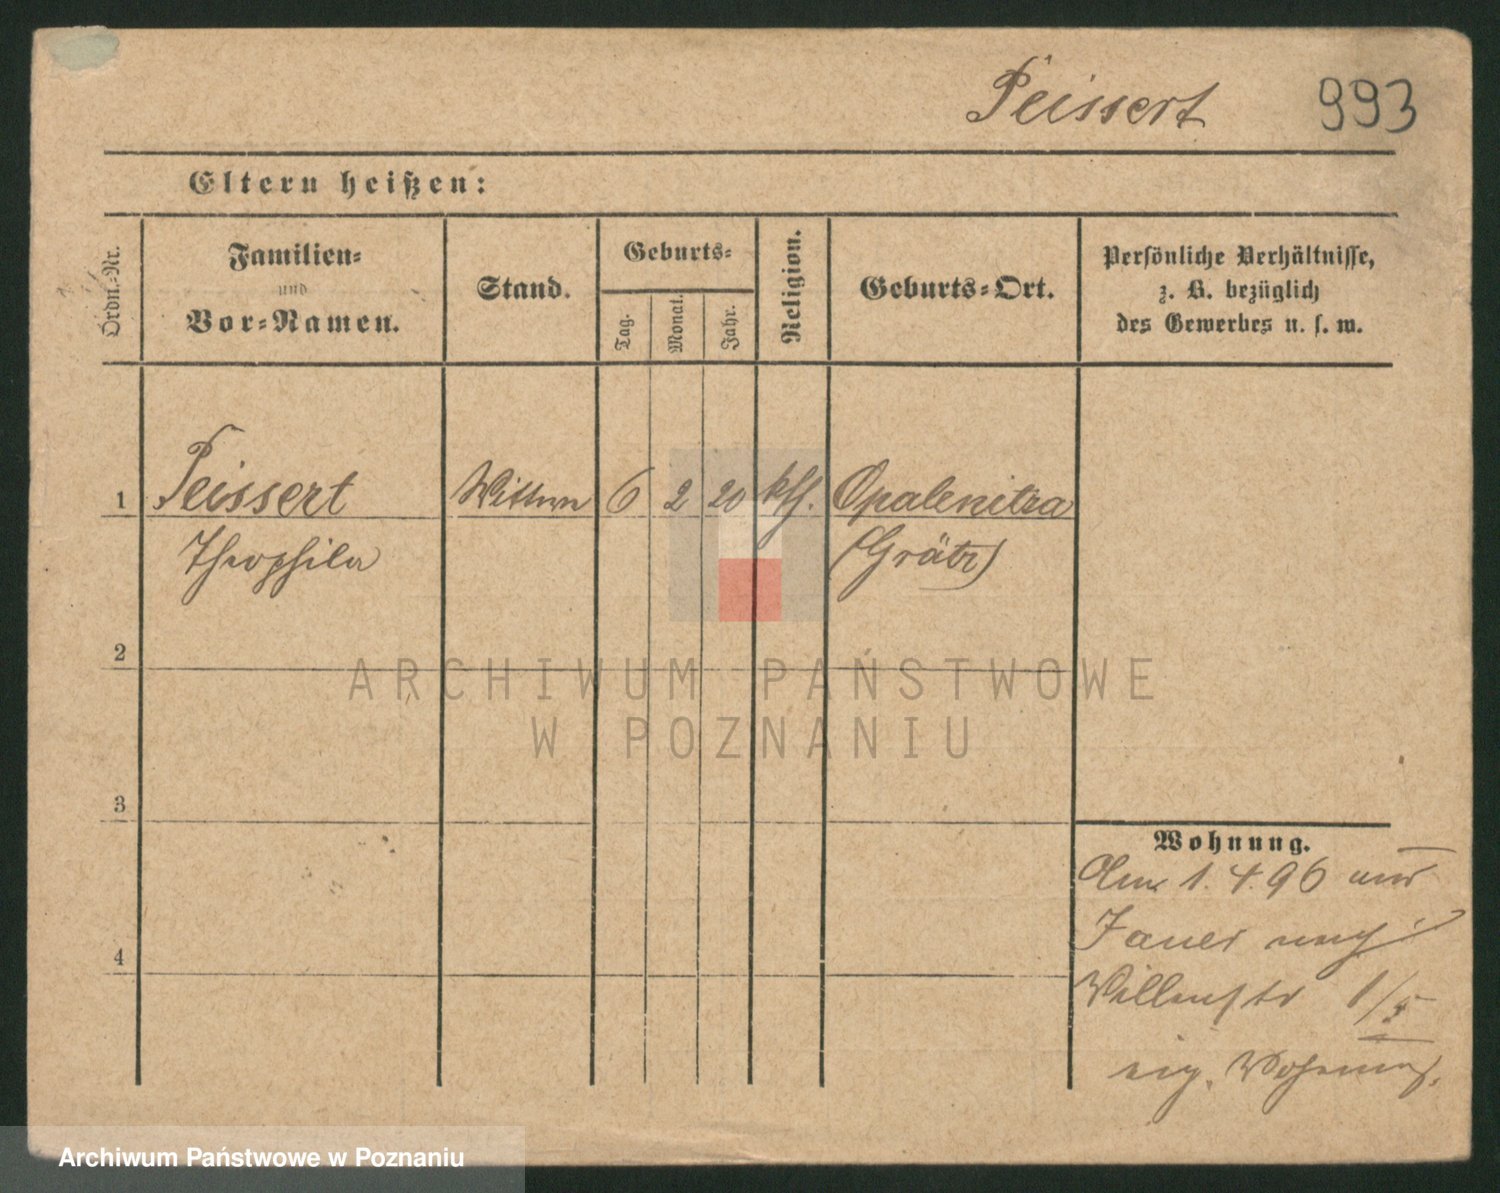 Peissert 993
Eltern heißen:
Ordn.-Nr.
Familien-
und
Vor-Namen.
Stand.
Geburts-
Tag.
Monat.
Jahr.
Religion.
Geburts-Ort.
Persönliche Verhältnisse,
z. B. bezüglich
des Gewerbes u. s. w.
1 Peissert Wittwe 6 2 20 kth. Opalenitza
Theophila (Grätz)
2
3
4
Wohnung.
Am 1. 4. 96 aus
Jauer nach
Villenstr 1/5
eig. Wohnung.
ARCHIWUM PAŃSTWOWE
W POZNANIU
Archiwum Państwowe w Poznaniu